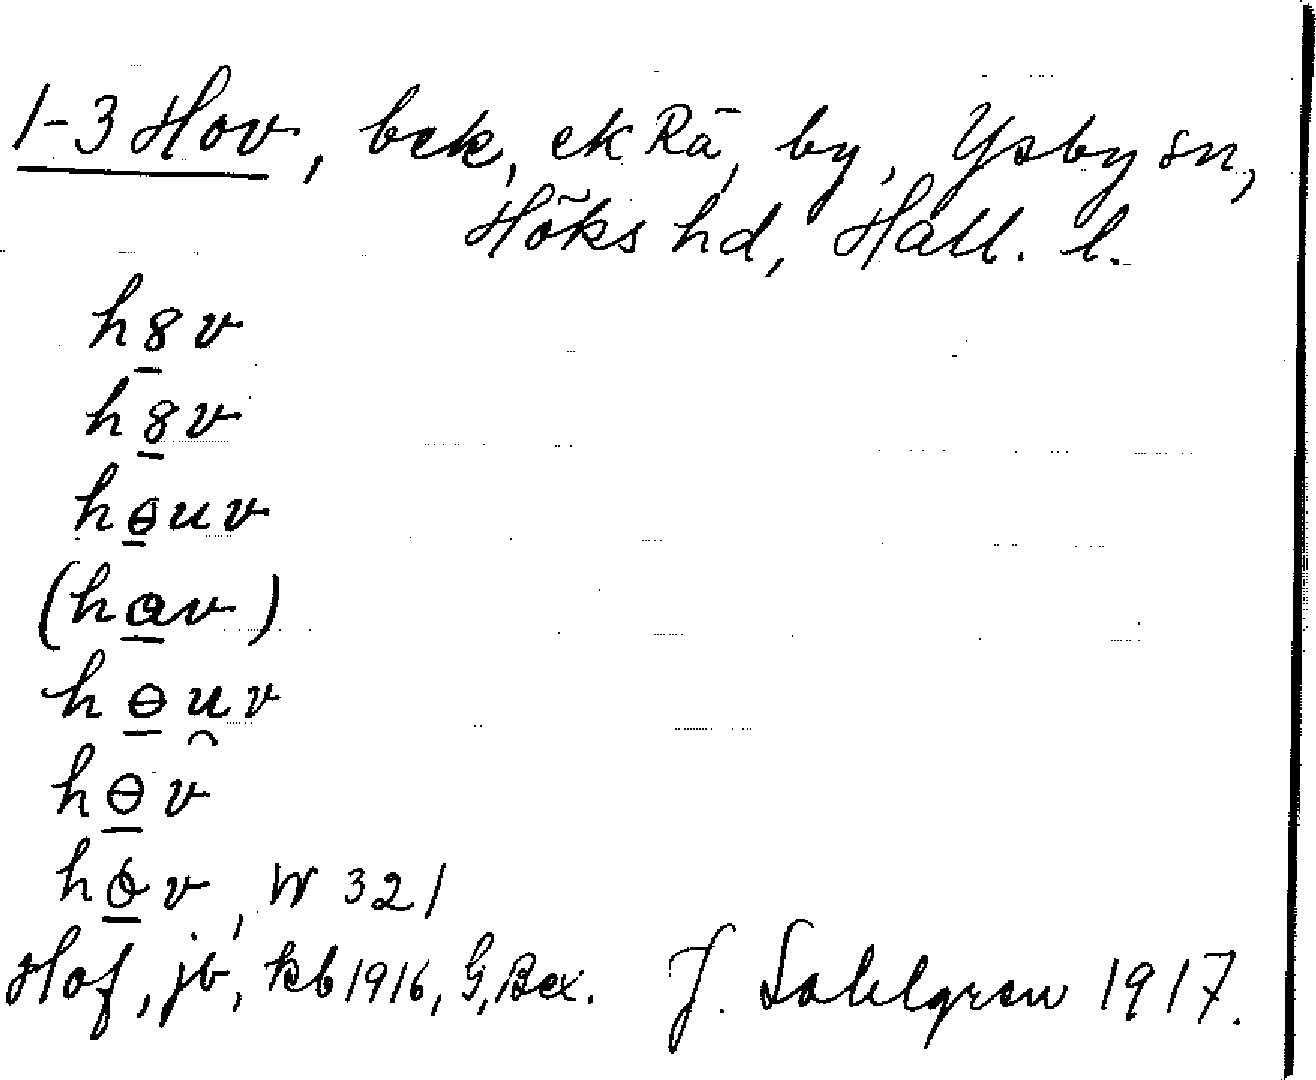 1-3 Hov, bek, ek Rä, by, Ysby sn,
Höks hd, Hall. l.
h8v
h8v
hɵuv
(hav)
hɵuv
hɵv
v, W 321
Hof, jb, kb 1916, G, Bex. J. Sahlgren 1917.